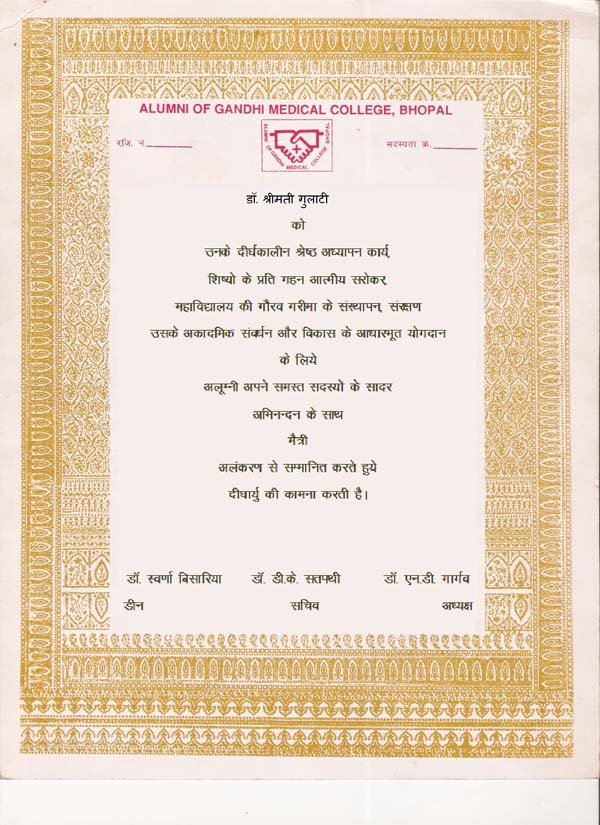 ALUMNI OF GANDHI MEDICAL COLLEGE, BHOPAL
ALUMNI OF GANDHI MEDICAL COLLEGE BHOPAL
रजि. नं.
सदस्यता क्र.
डॉ. श्रीमती गुलाटी
को
उनके दीर्घकालीन श्रेष्ठ अध्यापन कार्य,
शिष्यो के प्रति गहन आत्मीय सरोकर,
महाविद्यालय की गौरव गरीमा के संस्थापन, संरक्षण
उसके अकादमिक संवर्धन और विकास के आधारमूत योगदान
के लिये
अलूम्नी अपने समस्त सदस्यों के सादर
अमिनन्दन के साथ
मैत्री
अलंकरण से सम्मानित करते हुये
दीघार्यु की कामना करती है।
डॉ. स्वर्णा बिसारिया डॉ. डी.के. सतपथी डॉ. एन.डी. गार्गव
डीन सचिव अध्यक्ष